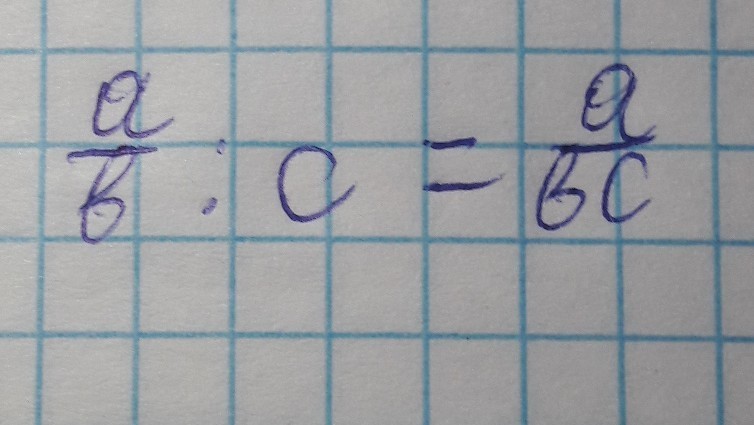 a/b : c = a/bc